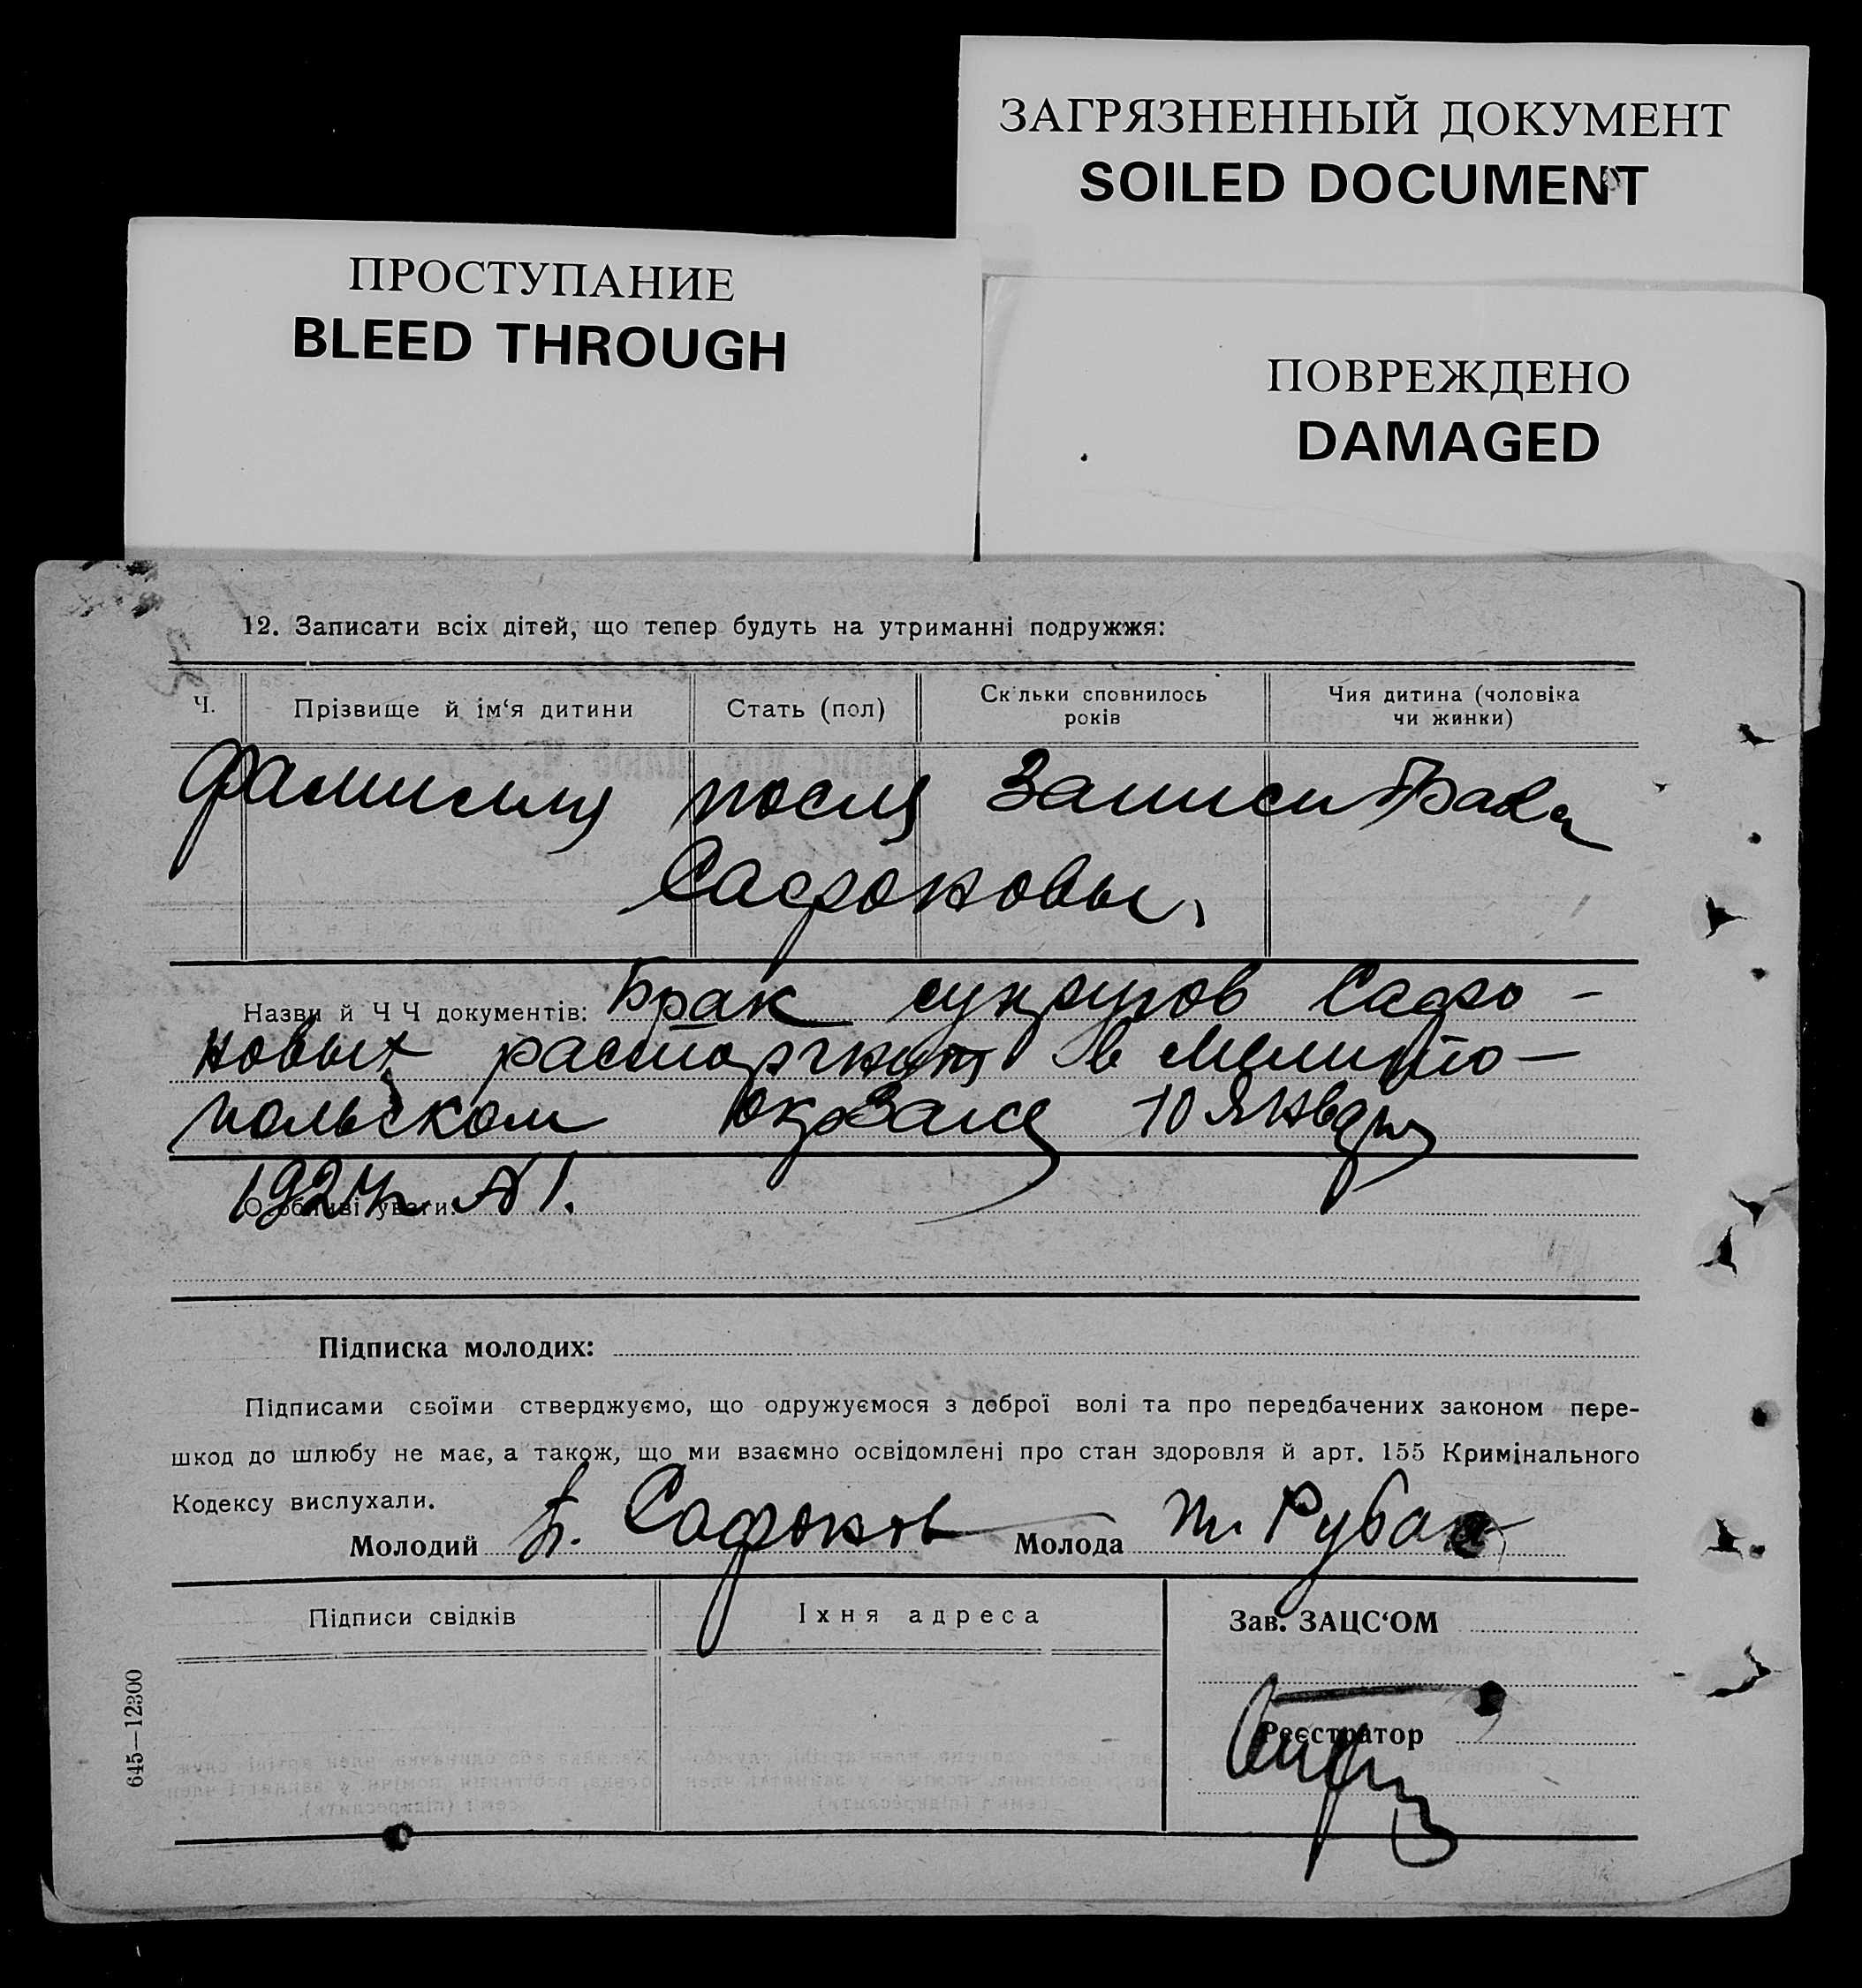 ЗАГРЯЗНЕННЫЙ ДОКУМЕНТ
SOILED DOCUMENT
ПРОСТУПАНИЕ
BLEED THROUGH
ПОВРЕЖДЕНО
DAMAGED
12. Записати всіх дітей, що тепер будуть на утриманні подружжя:
Ч. Прізвище й ім‘я дитини Стать (пол) Скільки сповнилось років Чия дитина (чоловіка чи жинки)
Фамилия после записи брака
Сафоновы.
Назви й Ч Ч документів: Брак супругов Сафо-
новых расторгнут в Мелито-
польском Окрзагсе 10 Января
Особливі уваги: 1924 г. № 1.
Підписка молодих:
Підписами своїми стверджуємо, що одружуємося з доброї волі та про передбачених законом пере-
шкод до шлюбу не має, а також, що ми взаємно освідомлені про стан здоровля й арт. 155 Кримінального
Кодексу вислухали.
Молодий Сафонов Молода Рубан
Підписи свідків Їхня адреса Зав. ЗАЦС‘ОМ
Реєстратор
645—12300